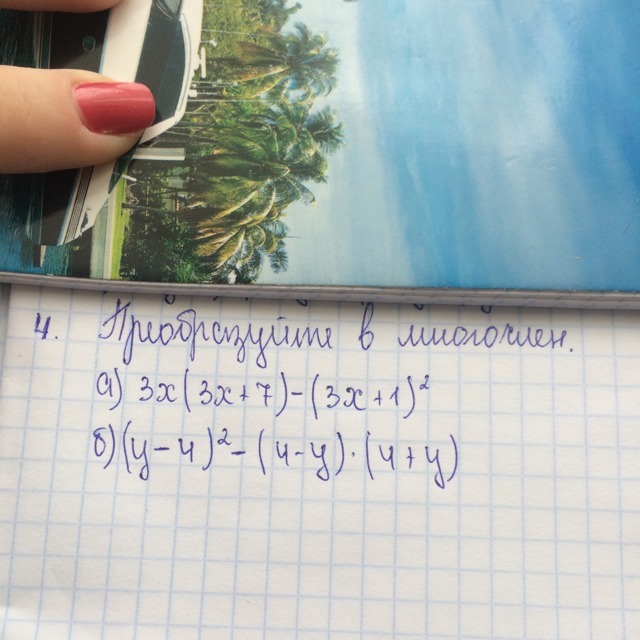 4. Преобразуйте в многочлен.
а) 3x(3x+7)-(3x+1)²
б) (y-4)²-(4-y)·(4+y)